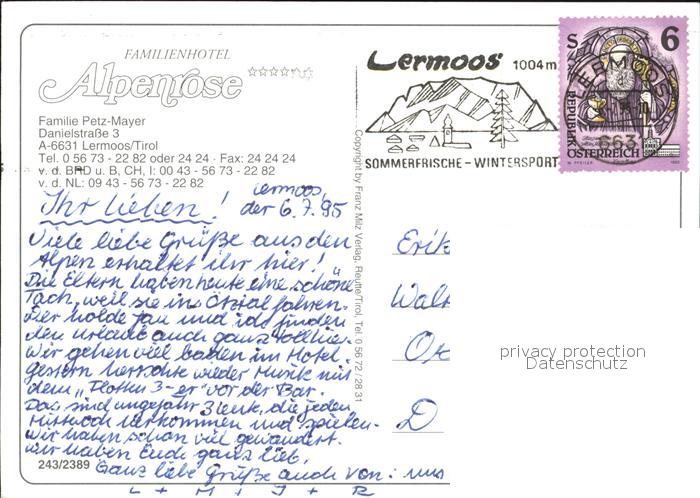 FAMILIENHOTEL
Alpenrose
Familie Petz-Mayer
Danielstraße 3
A-6631 Lermoos/Tirol
Tel. 0 56 73 - 22 82 oder 24 24 · Fax: 24 24 24
v. d. BRD u. B, CH, I: 00 43 - 56 73 - 22 82
v. d. NL: 09 43 - 56 73 - 22 82
Lermoos,
Ihr Lieben! der 6.7.95
Viele liebe Grüße aus den
Alpen erhaltet ihr hier!
Die Eltern haben heute eine schöne
Tach, weil sie ins Ötztal fahren.
Der holde Jan und ich finden
den Urlaub auch ganz toll hier.
Wir gehen viel baden im Hotel.
Gestern herrschte wieder Musik mit
dem „Flotten 3-er" vor der Bar.
Das sind ungefähr 3 Leute, die jeden
Mittwoch herkommen und spielen.
Wir haben schon viel gewandert.
Wir haben Euch ganz lieb.
Ganz liebe Grüße auch von: uns
L + M + J + R
243/2389
Copyright by Franz Milz Verlag, Reutte/Tirol, Tel. 0 56 72 / 28 31
Lermoos 1004 m
SOMMERFRISCHE - WINTERSPORT
S 6
LERMOOS
663
REPUBLIK
ÖSTERREICH
Erik
Walt
D
privacy protection
Datenschutz